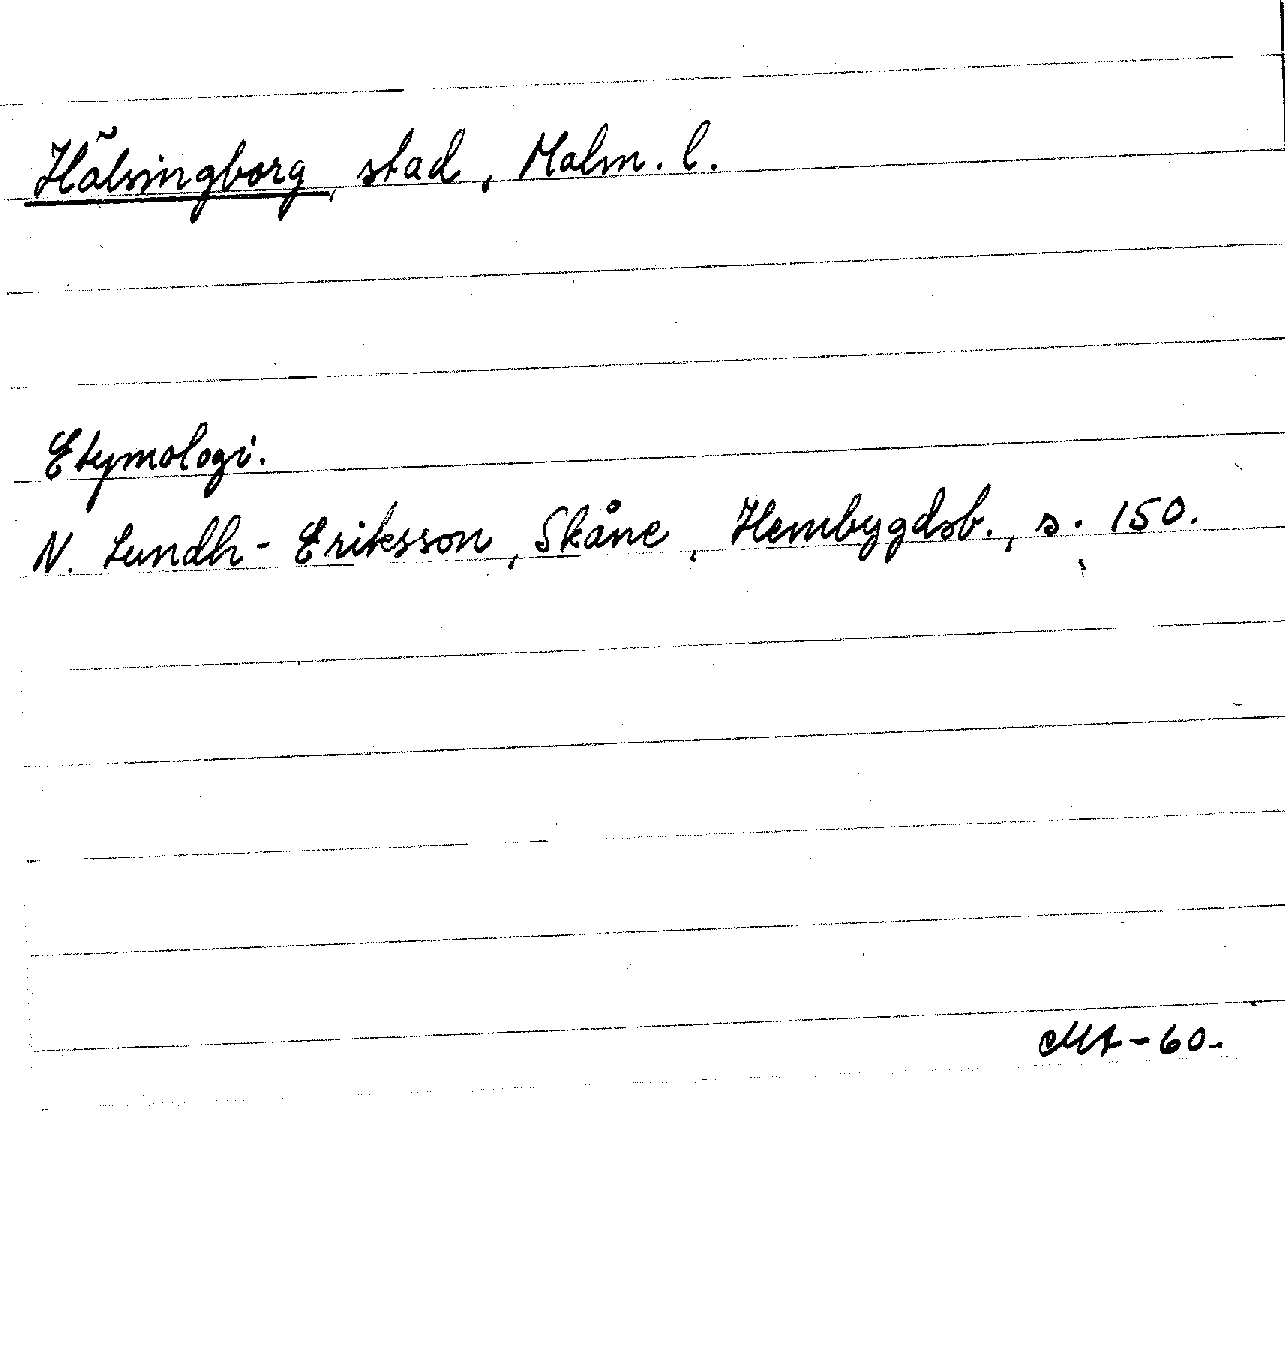 Hälsingborg, stad, Malm. l.
Etymologi.
N. Lundh-Eriksson, Skåne, Hembygdsb., s. 150.
MA-60.